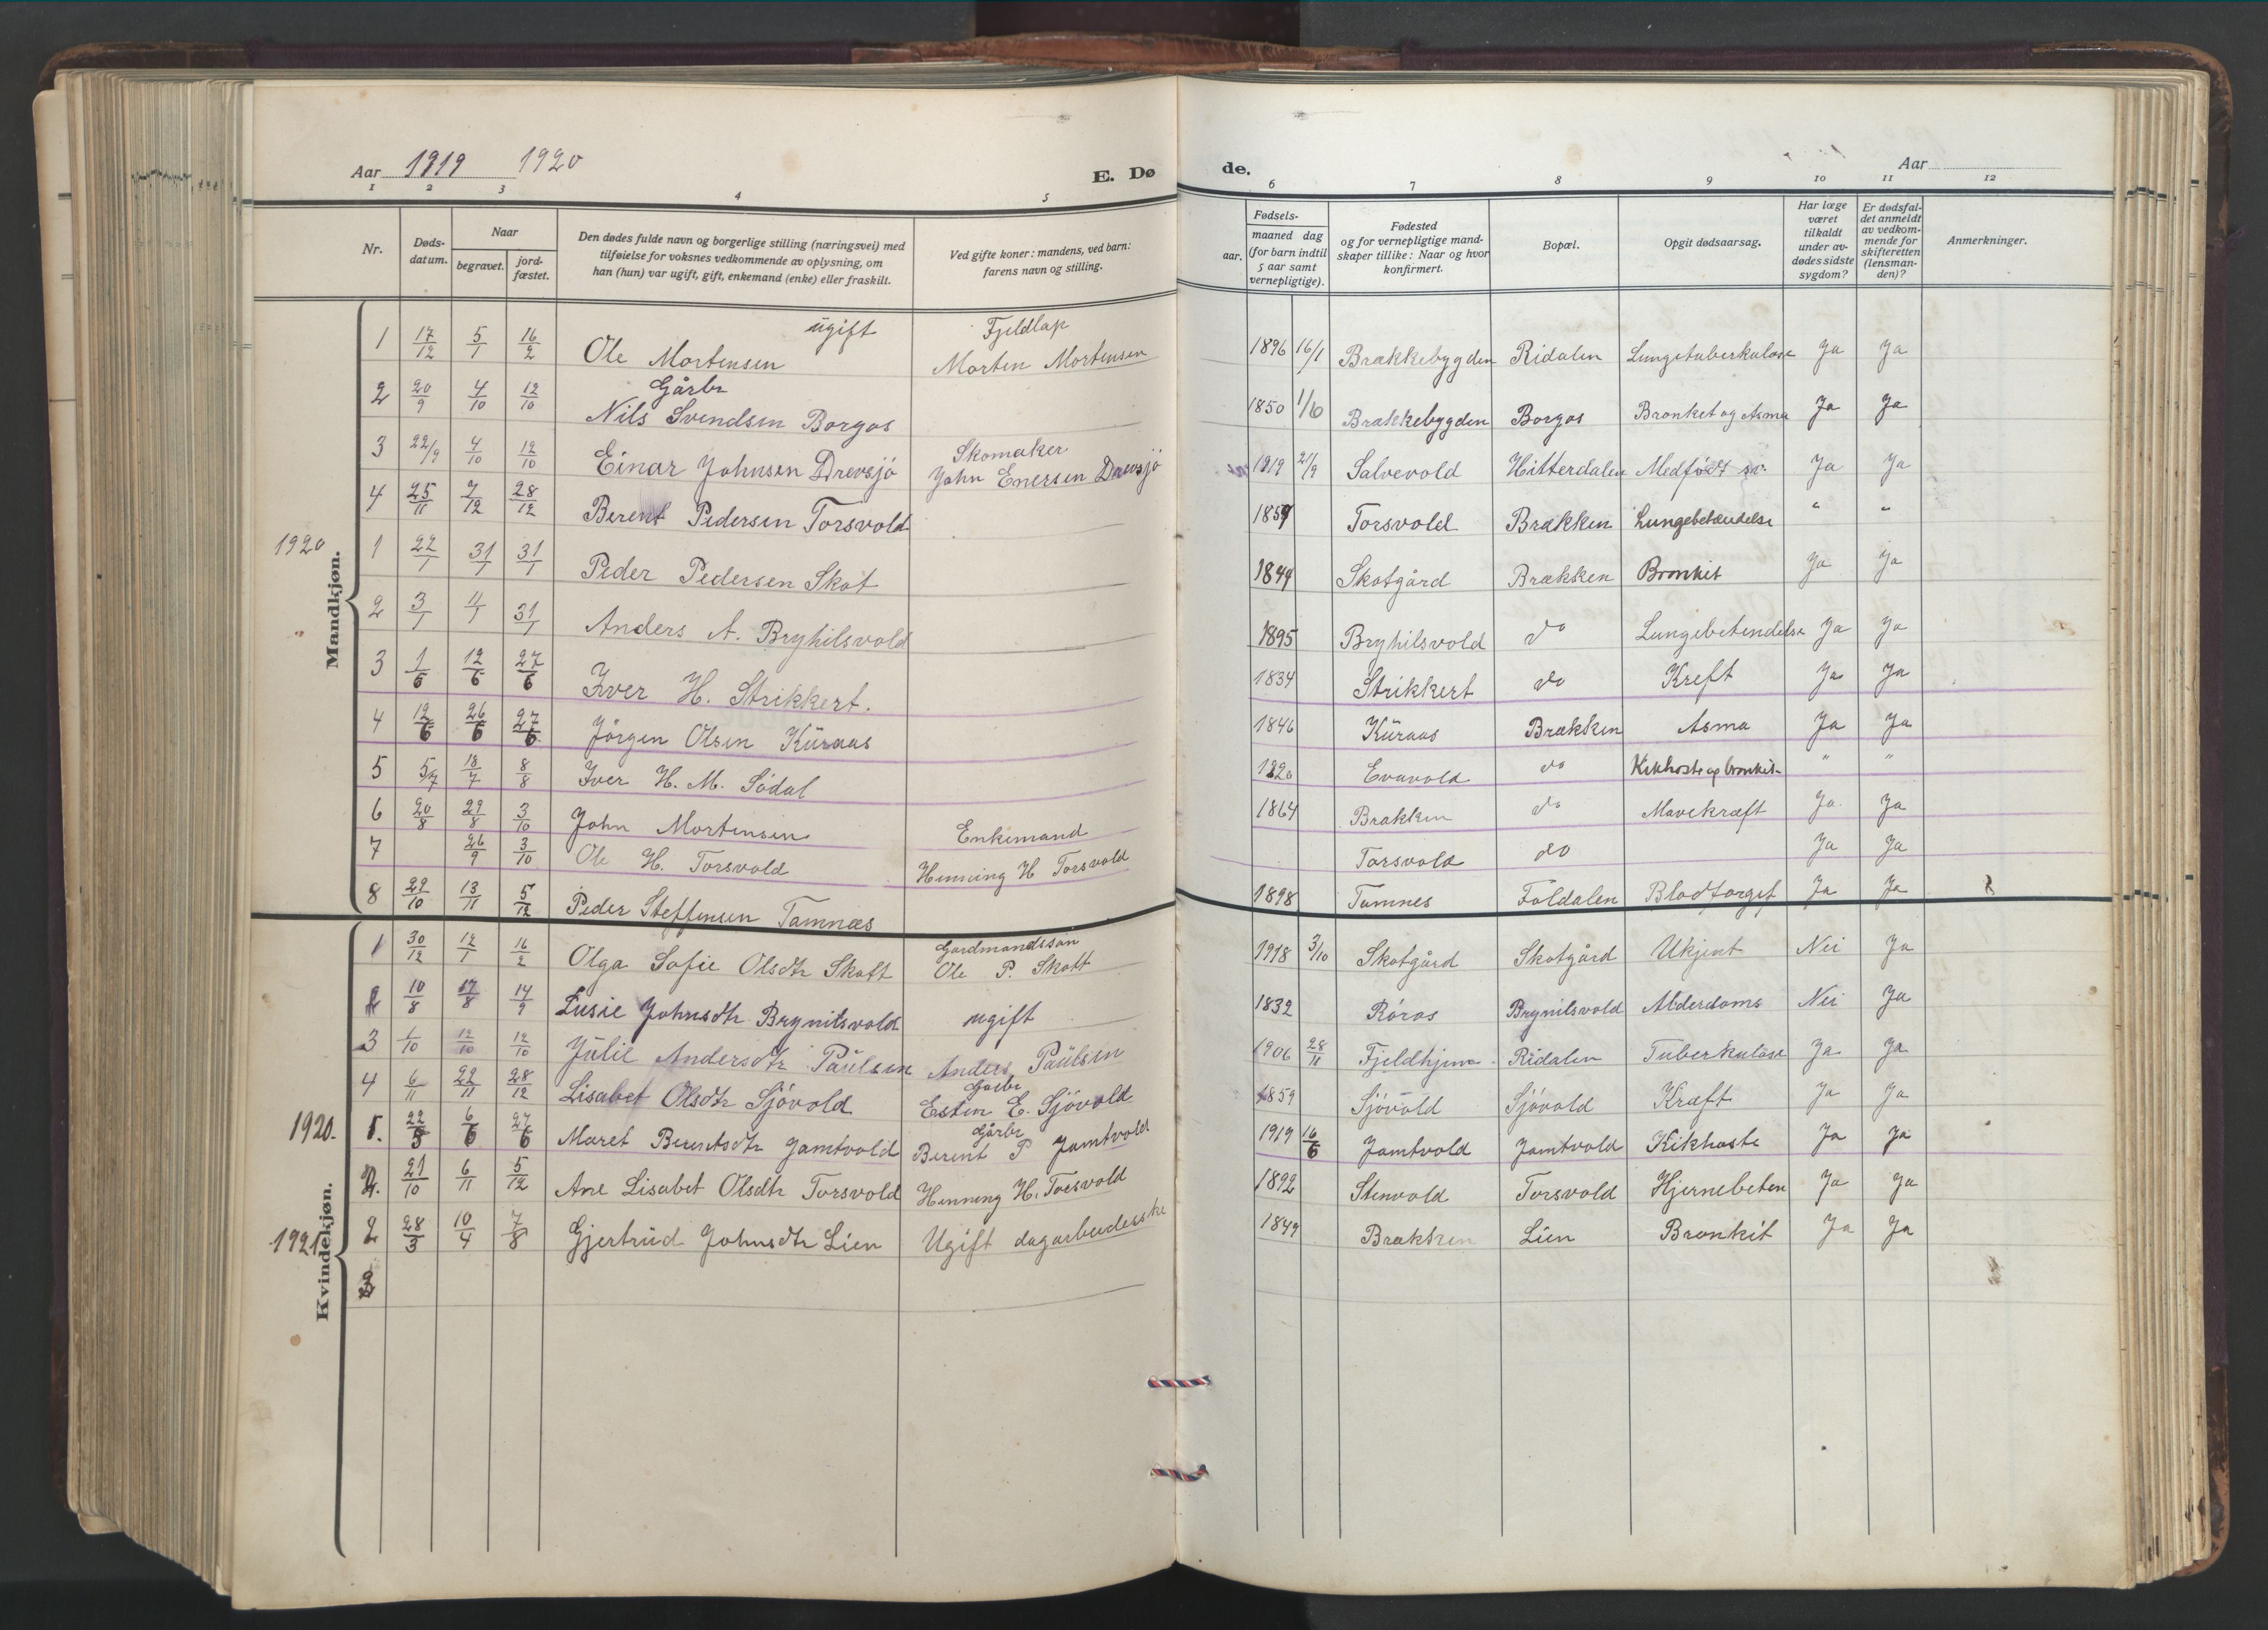 Aar 1919 1920 E. Dø de. Aar
1 2 3 4 5 6 7 8 9 10 11 12
Nr. Døds-datum. Naar begravet. jord-fæstet. Den dødes fulde navn og borgerlige stilling (næringsvei) med tilføielse for voksnes vedkommende av oplysning, om han (hun) var ugift, gift, enkemand (enke) eller fraskilt. Ved gifte koner: mandens, ved barn: farens navn og stilling. Fødsels- aar. maaned dag (for barn indtil 5 aar samt vernepligtige). Fødested og for vernepligtige mand-skaper tillike: Naar og hvor konfirmert. Bopæl. Opgit dødsaarsag. Har læge været tilkaldt under av-dødes sidste sygdom? Er dødsfal-det anmeldt av vedkom-mende for skifteretten (lensman-den)? Anmerkninger.
Mandkjøn.
1 17/12 5/1 16/2 Ole Mortensen ugift Fjeldlap Morten Mortensen 1896 16/1 Brækkebygden Ridalen Lungetuberkulose Ja Ja
2 20/9 4/10 12/10 Gårbr Nils Svendsen Borgos 1850 1/10 Brækkebygden Borgos Bronket og Asma Ja Ja
3 22/9 4/10 12/10 Einar Johnsen Drevsjö Skomaker John Enersen Drevsjö 1919 21/9 Salvevold Hitterdalen Medfödt Ja Ja
4 25/11 7/12 28/12 Berent Pedersen Torsvold 1859 Torsvold Brækken Lungebetændelse " "
1920 1 22/1 31/1 31/1 Peder Pedersen Skot 1849 Skotgård Brækken Bronkit Ja Ja
2 3/1 11/1 31/1 Anders A. Bryhilsvold 1895 Bryhilsvold do Lungebetendelse Ja Ja
3 1/6 12/6 27/6 Iver H. Strikkert. 1834 Strikkert do Kreft Ja Ja
4 12/6 26/6 27/6 Jörgen Olsen Küraas 1846 Küraas Brækken Asma Ja Ja
5 5/7 18/7 8/8 Iver H. M. Södal 1920 Evavold do Kikhoste og bronkit " "
6 20/8 29/8 3/10 John Mortensen Enkemand 1864 Brækken do Mavekræft Ja Ja
7 26/9 3/10 Ole H. Torsvold Henning H Torsvold Torsvold do Ja Ja
8 29/10 13/11 5/12 Peder Steffensen Tamnæs 1898 Tamnes Földalen Blodforgif Ja Ja
Kvindekjøn.
1 30/12 12/1 16/2 Olga Sofie Olsdtr Skott Gardmandssön Ole P. Skott 1918 3/10 Skotgård Skotgård Ukjent Nei Ja
2 10/8 17/8 14/9 Lusie Johnsdtr Brynilsvold ugift 1832 Röros Brynilsvold Alderdoms Nei Ja
3 1/10 12/10 12/10 Jülie Andersdtr Paülsen Anders Paülsen 1906 28/11 Fjeldhjem Ridalen Tuberkulose Ja Ja
4 6/11 22/11 28/12 Lisabet Olsdtr Sjövold Garbr Esten E. Sjövold 1859 Sjövold Sjövold Kræft Ja Ja
1920. 1. 22/5 6/6 27/6 Maret Berentsdtr Jamtvold Gårbr Berent P Jamtvold 1919 16/6 Jamtvold Jamtvold Kikhoste Ja Ja
2. 21/10 6/11 5/12 Ane Lisabet Olsdtr Torsvold Henning H. Torsvold 1892 Stenvold Torsvold Hjernebeten Ja Ja
1921 2 28/3 10/4 7/8 Gjertrüd Johnsdtr Lien Ugift dagarbeiderske 1849 Brækken Lien Bronkit Ja Ja